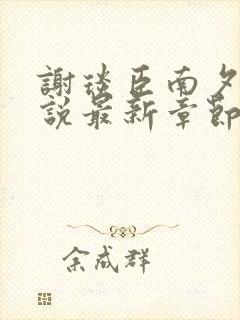 謝琰臣南夕
說最新章節
余成群